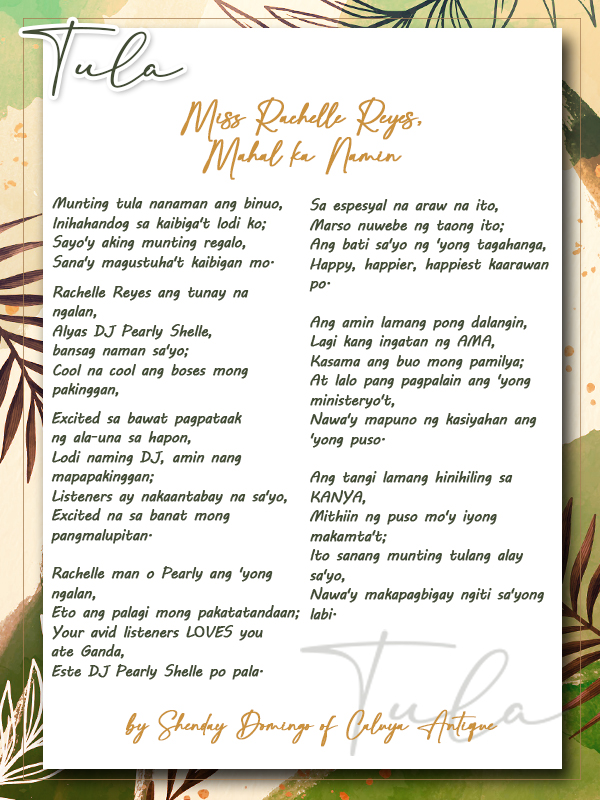 Tula
Miss Rachelle Reyes,
Mahal ka Namin
Munting tula nanaman ang binuo,
Inihahandog sa kaibiga't lodi ko;
Sayo'y aking munting regalo,
Sana'y magustuha't kaibigan mo.
Rachelle Reyes ang tunay na
ngalan,
Alyas DJ Pearly Shelle,
bansag naman sa'yo;
Cool na cool ang boses mong
pakinggan,
Excited sa bawat pagpataak
ng ala-una sa hapon,
Lodi naming DJ, amin nang
mapapakinggan;
Listeners ay nakaantabay na sa'yo,
Excited na sa banat mong
pangmalupitan.
Rachelle man o Pearly ang 'yong
ngalan,
Eto ang palagi mong pakatatandaan;
Your avid listeners LOVES you
ate Ganda,
Este DJ Pearly Shelle po pala.
Sa espesyal na araw na ito,
Marso nuwebe ng taong ito;
Ang bati sa'yo ng 'yong tagahanga,
Happy, happier, happiest kaarawan
po.
Ang amin lamang pong dalangin,
Lagi kang ingatan ng AMA,
Kasama ang buo mong pamilya;
At lalo pang pagpalain ang 'yong
ministeryo't,
Nawa'y mapuno ng kasiyahan ang
'yong puso.
Ang tangi lamang hinihiling sa
KANYA,
Mithiin ng puso mo'y iyong
makamta't;
Ito sanang munting tulang alay
sa'yo,
Nawa'y makapagbigay ngiti sa'yong
labi.
Tula
by Shenday Domingo of Caluya Antique